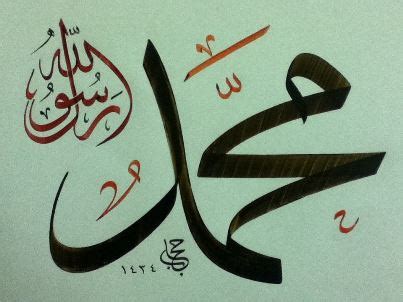 محمّد
رسول الله
١٤٣٤